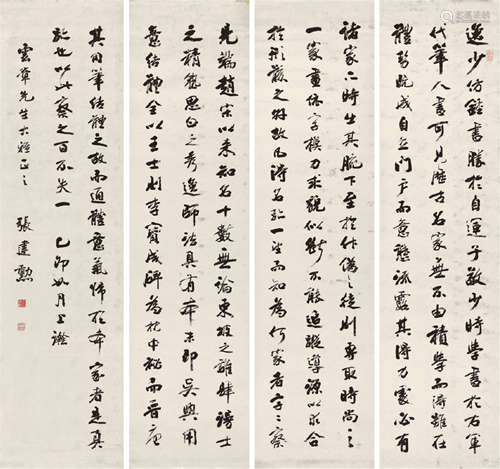 逸少仿鍾書勝於自運子敬少時學書於右軍
代筆人書可見歷古名家無不由積學而濟雖在
體勢既成自立門戶而意態流露其得力處必有
諸家亦時生其腕下至於作偽之徒則專取時尚之
一家畫依字模力求貌似斷不能追蹤導源以求合
於形骸之外故凡得名跡一望而知為何家者字字察
見端趙宋以來知名十數無論東坡之雄肆漫士
之精熟思白之秀逸師法具有本末即吳興用
意結體全以王士則李寶成碑為枕中秘而晉唐
其用筆結體之故而通體意氣歸於本家者是真
跡也以此察之百不失一 己卯如月上澣
先生大雅正之 張建勳